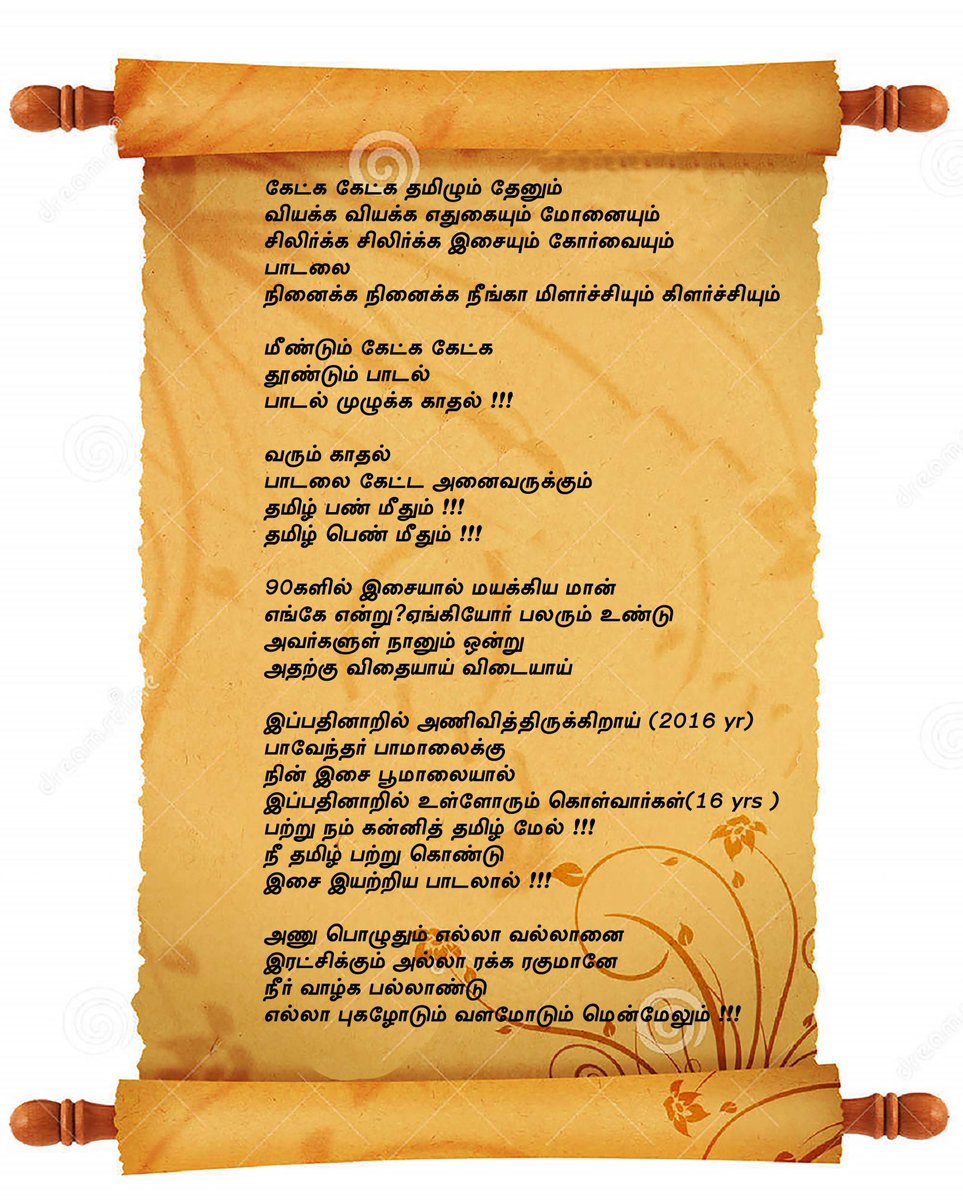 கேட்க கேட்க தமிழும் தேனும்
வியக்க வியக்க எதுகையும் மோனையும்
சிலிர்க்க சிலிர்க்க இசையும் கோர்வையும்
பாடலை
நினைக்க நினைக்க நீங்கா மிளர்ச்சியும் கிளர்ச்சியும்
மீண்டும் கேட்க கேட்க
தூண்டும் பாடல்
பாடல் முழுக்க காதல் !!!
வரும் காதல்
பாடலை கேட்ட அனைவருக்கும்
தமிழ் பண் மீதும் !!!
தமிழ் பெண் மீதும் !!!
90களில் இசையால் மயக்கிய மான்
எங்கே என்று?ஏங்கியோர் பலரும் உண்டு
அவர்களுள் நானும் ஒன்று
அதற்கு விதையாய் விடையாய்
இப்பதினாறில் அணிவித்திருக்கிறாய் (2016 yr)
பாவேந்தர் பாமாலைக்கு
நின் இசை பூமாலையால்
இப்பதினாறில் உள்ளோரும் கொள்வார்கள்(16 yrs )
பற்று நம் கன்னித் தமிழ் மேல் !!!
நீ தமிழ் பற்று கொண்டு
இசை இயற்றிய பாடலால் !!!
அணு பொழுதும் எல்லா வல்லானை
இரட்சிக்கும் அல்லா ரக்க ரகுமானே
நீர் வாழ்க பல்லாண்டு
எல்லா புகழோடும் வளமோடும் மென்மேலும் !!!